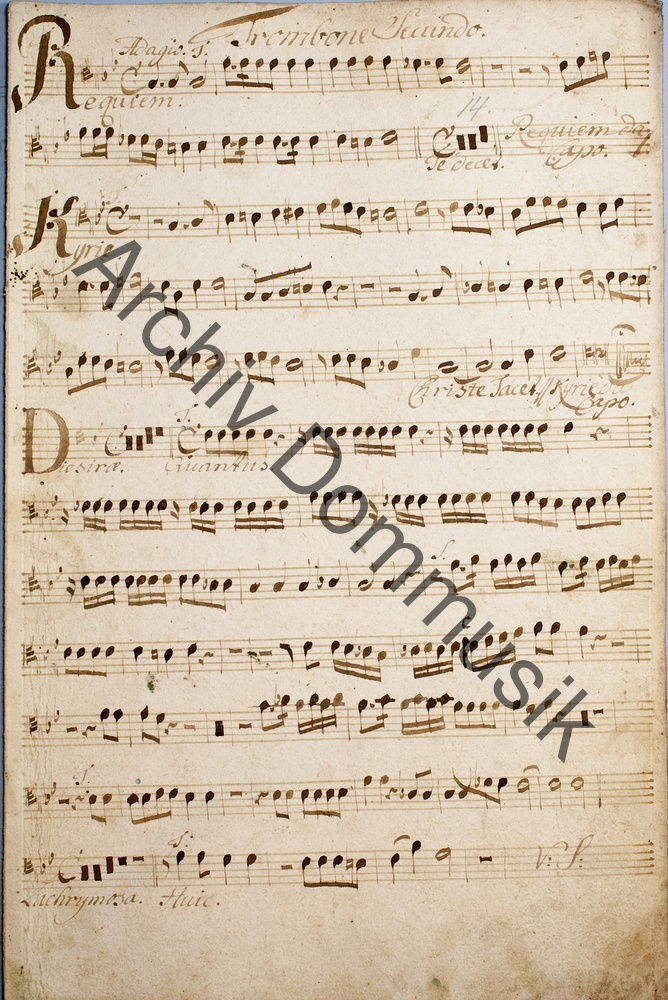 Adagio. s. Trombone Secundo.
Requiem.
14.
Te decet. Requiem da Capo.
Kyrie
Christe Tacet // Kyrie da Capo.
Dies iræ. Quantus
S.
Lachrymosa. Huic. V: S:
Archiv Dommusik